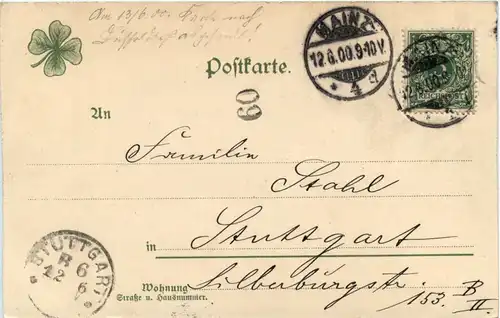 Am 13/6.00. Karte nach
Düsseldorf abgesandt!
Postkarte.
MAINZ
12.6.00.9-10V.
* 4 d
MAINZ
60
An
Familie
Stahl
in Stuttgart
Wohnung
Straße u. Hausnummer.
Silberburgstr. 153. B
II.
STUTTGART
12 6